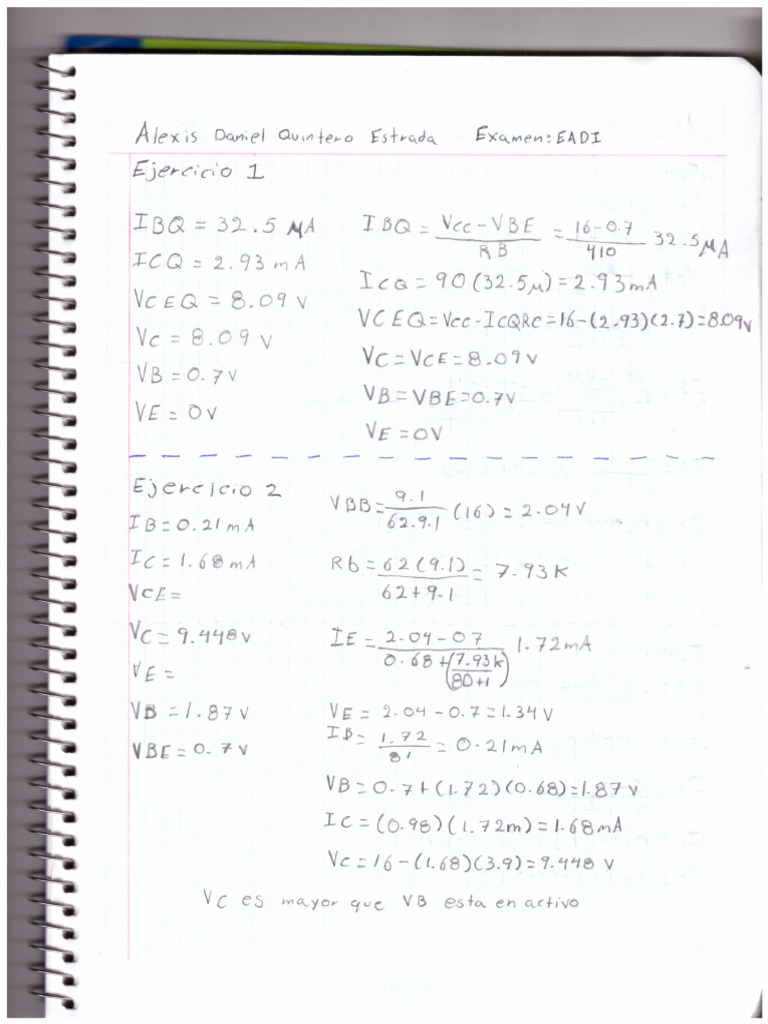 Alexis Daniel Quintero Estrada Examen: EADI
Ejercicio 1
IBQ = 32.5 μA
ICQ = 2.93 mA
VCEQ = 8.09 v
Vc = 8.09 v
VB = 0.7v
VE = 0v
IBQ = Vcc - VBE / RB = 16-0.7 / 410 32.5μA
ICQ = 90 (32.5μ) = 2.93mA
VCEQ=Vcc-ICQRc=16-(2.93)(2.7)=8.09v
VC=VCE=8.09v
VB=VBE=0.7V
VE=0V
Ejercicio 2
IB=0.21mA
IC=1.68mA
VCE=
VC=9.448v
VE=
VB=1.87v
VBE=0.7v
VBB= 9.1 / 62.9.1 (16) = 2.04v
Rb = 62(9.1) / 62+9.1 = 7.93K
IE= 2.04-07 / 0.68+(7.93k / 80+1) 1.72mA
VE = 2.04-0.7=1.34V
IB= 1.72 / 81 = 0.21mA
VB=0.7+(1.72)(0.68)=1.87v
IC=(0.98)(1.72m)=1.68mA
Vc=16-(1.68)(3.9)=9.448v
VC es mayor que VB esta en activo